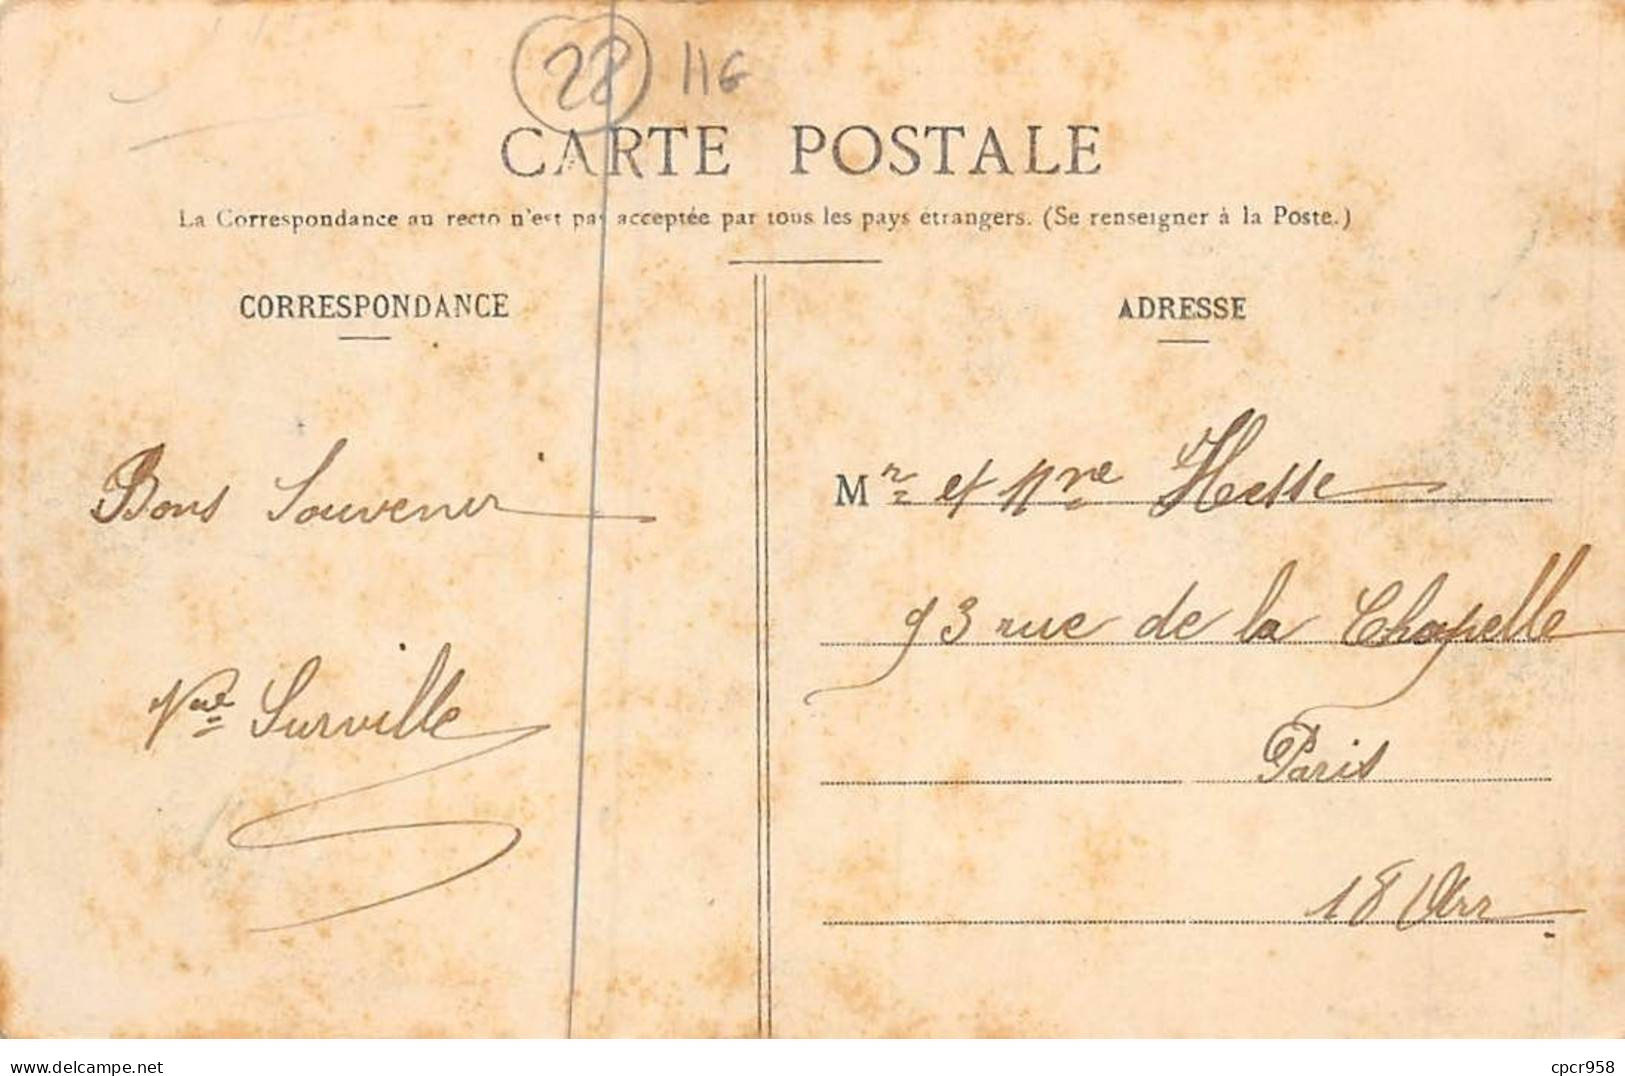 28 116
CARTE POSTALE
La Correspondance au recto n'est pas acceptée par tous les pays étrangers. (Se renseigner à la Poste.)
CORRESPONDANCE
ADRESSE
Bons Souvenir
Vve Surville
Mr et Mme Hesse
93 rue de la Chapelle
Paris
18 Arr
delcampe.net
cpcr958